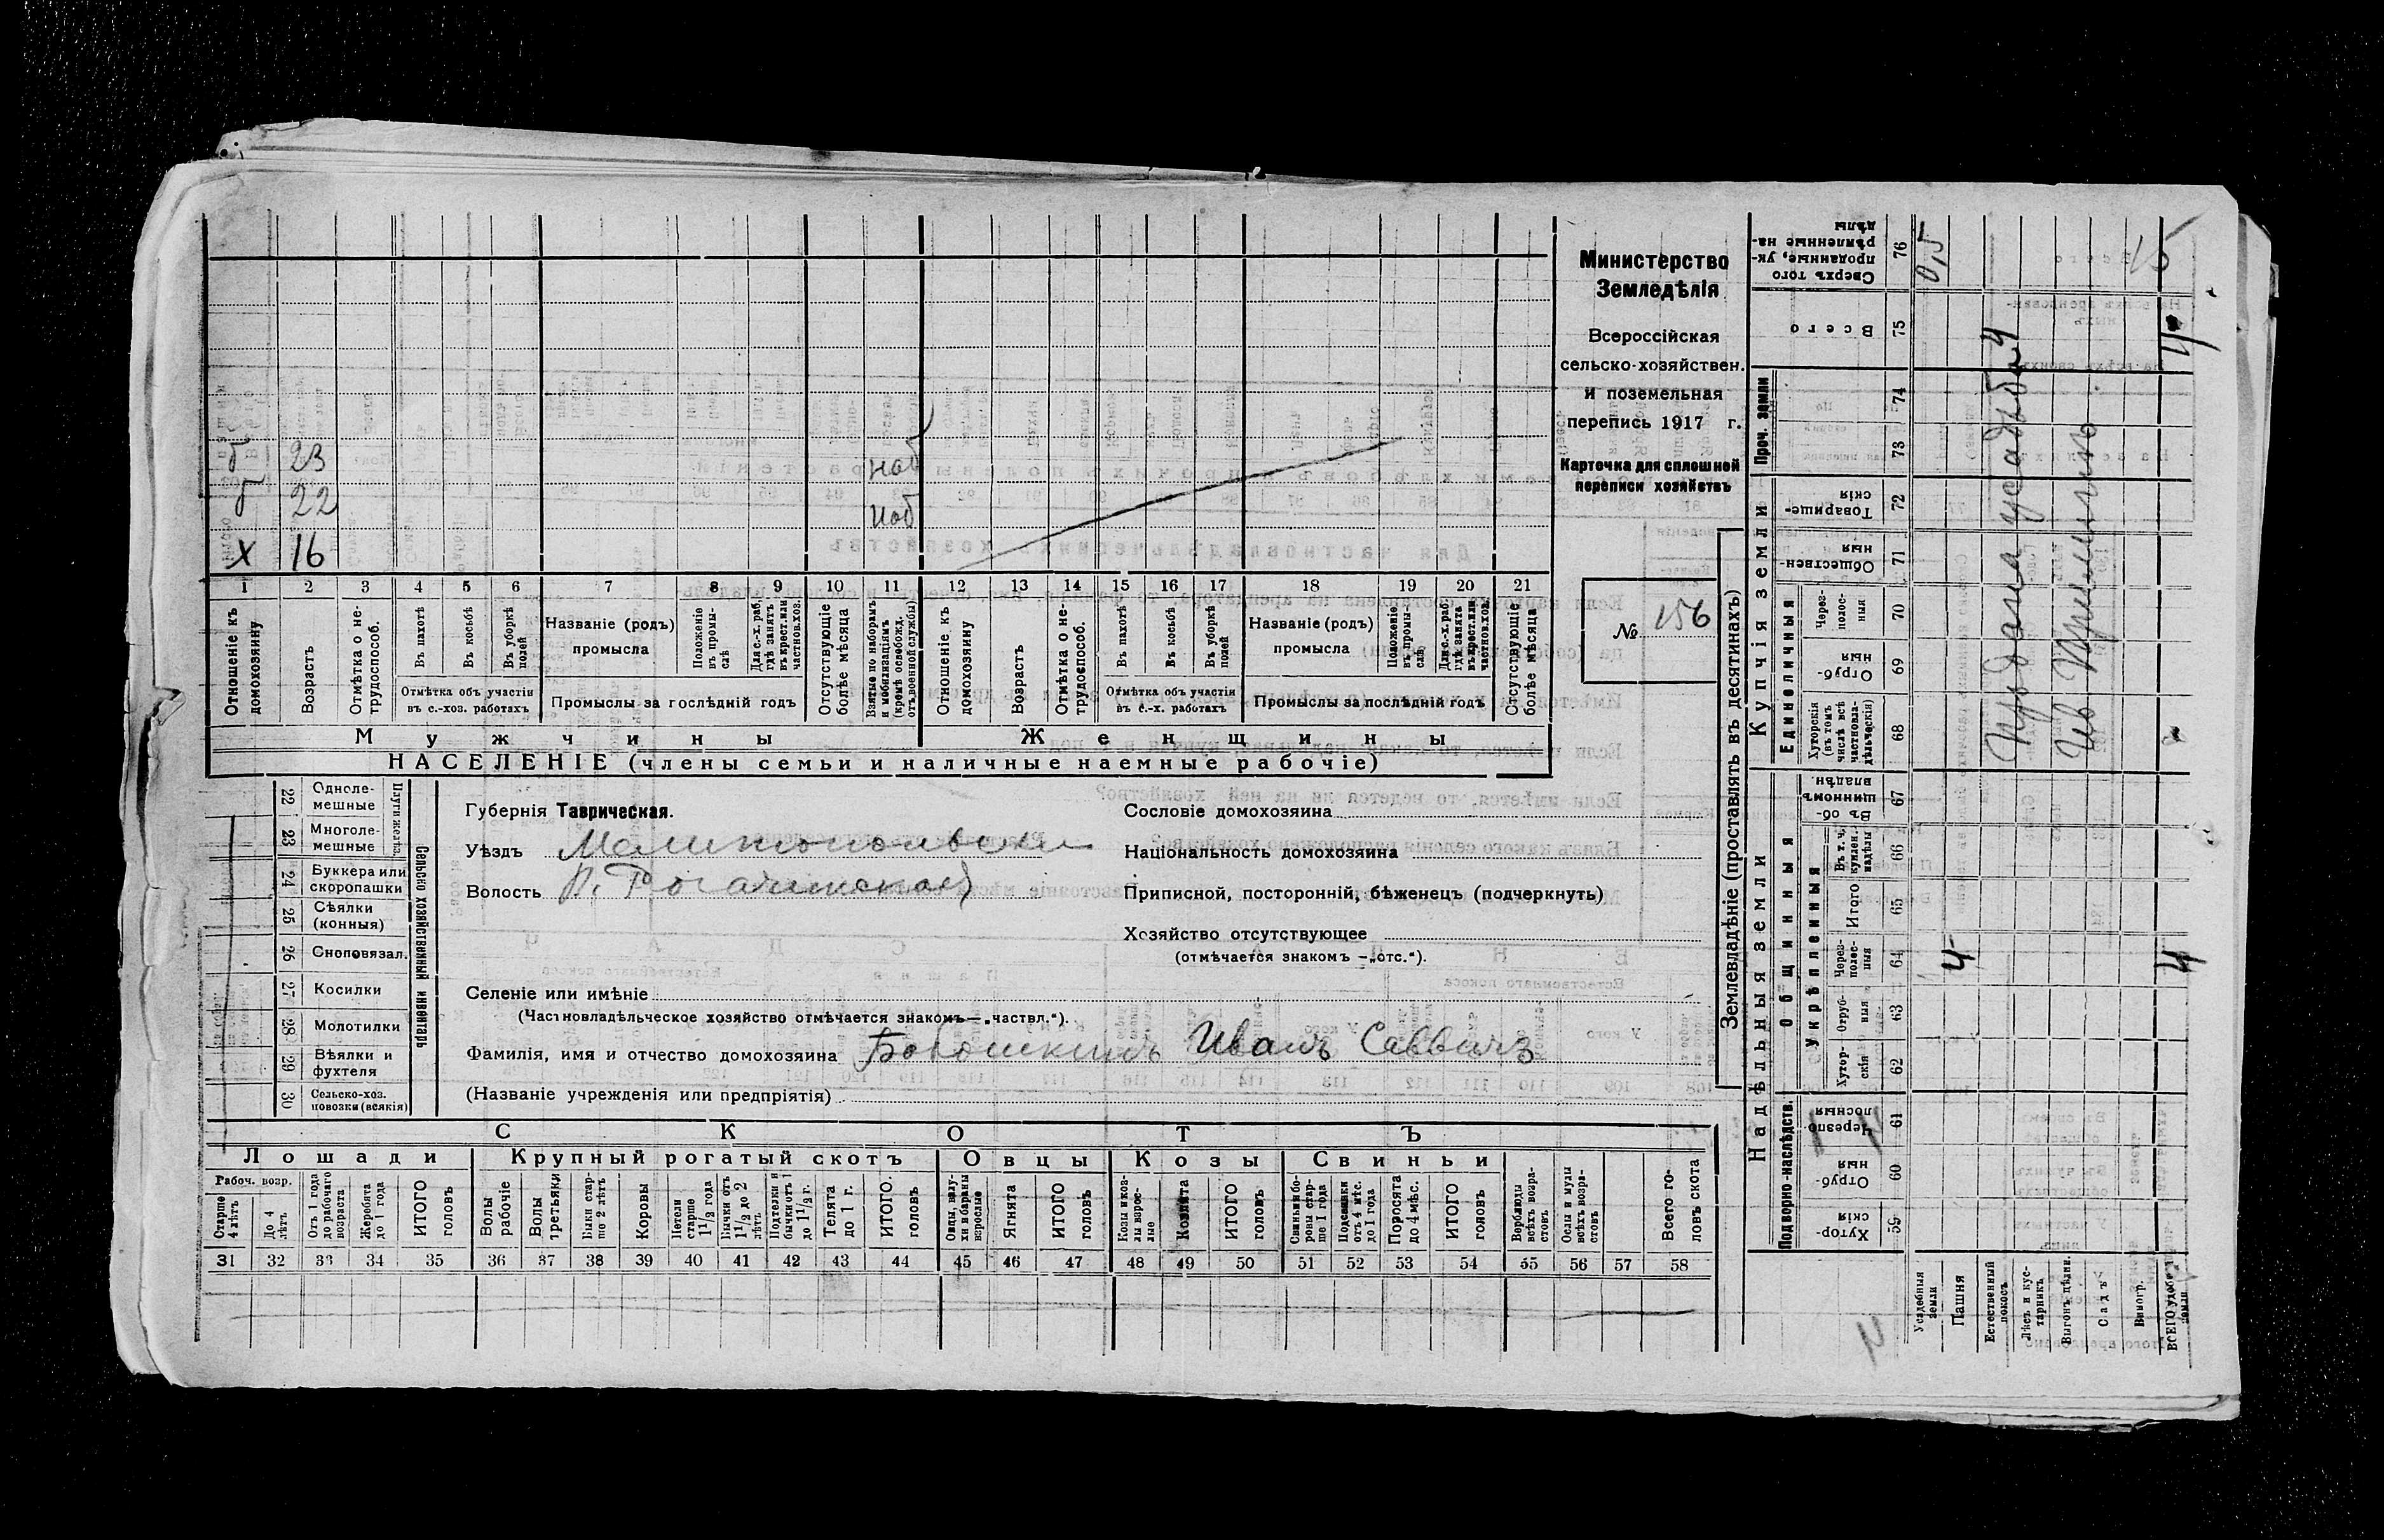 Министерство
Земледѣлія
Всероссійская
сельско-хозяйствен.
и поземельная
перепись 1917 г.
Карточка для сплошной
переписи хозяйствъ
№ 156
б 23 наб
б 22 наб
х 16
1 2 3 4 5 6 7 8 9 10 11 12 13 14 15 16 17 18 19 20 21
Отношеніе къ домохозяину
Возрастъ
Отмѣтка о нетрудоспособ.
Въ пахотѣ
Въ косьбѣ
Въ уборкѣ полей
Отмѣтка объ участіи въ с.-хоз. работахъ
Названіе (родъ) промысла
Положеніе въ промыслѣ
Для с.-х. раб. гдѣ занятъ въ крест. или частнов. хоз.
Промыслы за послѣдній годъ
Отсутствующіе болѣе мѣсяца
Взятые по наборамъ и мобилизаціямъ (кромѣ освобожд. отъ военной службы)
Отношеніе къ домохозяину
Возрастъ
Отмѣтка о нетрудоспособ.
Въ пахотѣ
Въ косьбѣ
Въ уборкѣ полей
Отмѣтка объ участіи въ с.-х. работахъ
Названіе (родъ) промысла
Положеніе въ промыслѣ
Для с.-х. раб. гдѣ занята въ крест. или частнов. хоз.
Промыслы за послѣдній годъ
Отсутствующіе болѣе мѣсяца
Мужчины Женщины
НАСЕЛЕНІЕ (члены семьи и наличные наемные рабочіе)
22 Однолемешные
23 Многолемешные
Плуги желѣз.
24 Буккера или скоропашки
25 Сѣялки (конныя)
26 Сноповязал.
27 Косилки
28 Молотилки
29 Вѣялки и фухтеля
30 Сельско-хоз. повозки (всякія)
Сельско хозяйственный инвентарь
Губернія Таврическая.
Уѣздъ Мелитопольскій
Волость В. Рогачикской
Сословіе домохозяина
Національность домохозяина
Приписной, посторонній, бѣженецъ (подчеркнуть)
Хозяйство отсутствующее
(отмѣчается знакомъ —„отс.“).
Селеніе или имѣніе
(Частновладѣльческое хозяйство отмѣчается знакомъ—„частвл.“).
Фамилія, имя и отчество домохозяина Иванъ Саввичъ
(Названіе учрежденія или предпріятія)
СКОТЪ
Лошади Крупный рогатый скотъ Овцы Козы Свиньи
Рабоч. возр.
Старше 4 лѣтъ
До 4 лѣтъ
Отъ 1 года до рабочаго возраста
Жеребята до 1 года
ИТОГО головъ
Волы рабочіе
Волы третьяки
Быки старше 2 лѣтъ
Коровы
Нетели старше 1 1/2 года
Бычки отъ 1 1/2 до 2 лѣтъ
Подтелки и бычки отъ 1 до 1 1/2 г.
Телята до 1 г.
ИТОГО головъ
Овцы, валухи и бараны взрослые
Ягнята
ИТОГО головъ
Козы и козлы взрослые
Козлята
ИТОГО головъ
Свиньи и боровы старше 1 года
Подсвинки отъ 4 мѣс. до 1 года
Поросята до 4 мѣс.
ИТОГО головъ
Верблюды всѣхъ возрастовъ
Ослы и мулы всѣхъ возрастовъ
Всего головъ скота
31 32 33 34 35 36 37 38 39 40 41 42 43 44 45 46 47 48 49 50 51 52 53 54 55 56 57 58
Землевладѣніе (проставлять въ десятинахъ)
Надѣльныя земли
Купчія земли
Подворно-наслѣдств.
Общинныя
Укрѣпленныя
Единоличныя
Проч. земли
Сверхъ того проданные, укрѣпленные надѣлы 76
Всего 75
74
73
Товарищескія 72
Общественныя 71
Черезполосныя 70
Отрубныя 69
Хуторскія (въ томъ числѣ всѣ частновладѣльческія) 68
Въ общинномъ владѣн. 67
Въ т. ч. куплен. надѣлы 66
Итого 65
Черезполосныя 64
Отрубныя 63
Хуторскія 62
Черезполосныя 61
Отрубныя 60
Хуторскія 59
Усадебныя земли
Пашня
Естественный покосъ
Лѣсъ и кустарникъ
Выгонъ
Садъ
Виногр.
ВСЕГО удобн. земли
0,5
4
4
Продана усадьба
15